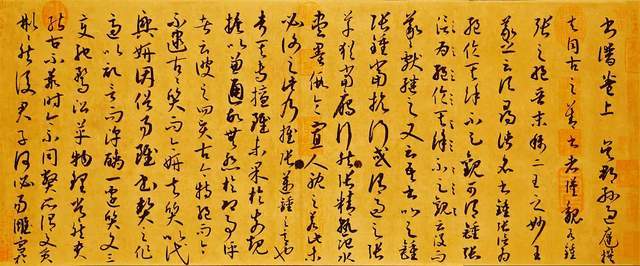 書譜卷上 吳郡孫過庭撰
夫自古之善書者漢魏有鍾
張之絕晉末稱二王之妙王
羲之云頃尋諸名書鍾張信為
絕倫其餘不足觀可謂鍾張
信為絕倫其餘不足觀云沒而
羲獻繼之又云吾書比之鍾
張鍾當抗行或謂過之張
草猶當鴈行然張精熟池水
盡墨假令寡人耽之若此未
必謝之此乃推張邁鍾之意也
考其專擅雖未果於前規
摭以兼通故無慚於即事評
者云彼之四賢古今特絕而今
不逮古古質而今妍夫質以代
興妍因俗易雖書契之作
適以記言而淳醨一遷質文三
變馳騖沿革物理常然貴
能古不乖時今不同弊所謂文質
彬彬然後君子何必易雕宮